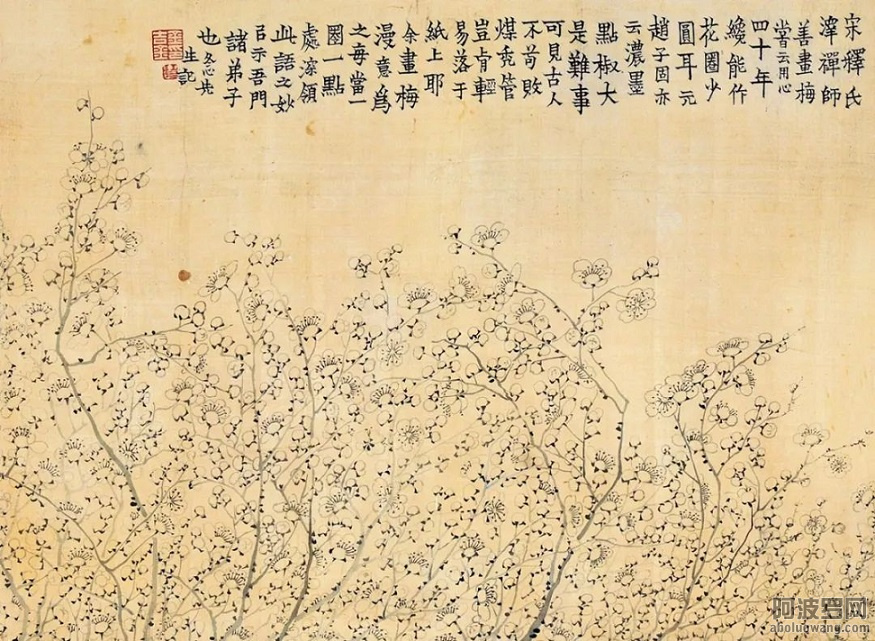 宋釋氏
澤禪師
善畫梅
嘗云用心
四十年
纔能作
花圈少
圓耳元
趙子固亦
云濃墨
點椒大
是難事
可見古人
不苟敗
煤秃管
豈肯輕
易落于
紙上耶
余畫梅
漫意爲
之每當一
圈一點
處深領
此語之妙
㠯示吾門
諸弟子
也冬心先
生記
阿波罗网
aboluowang.com